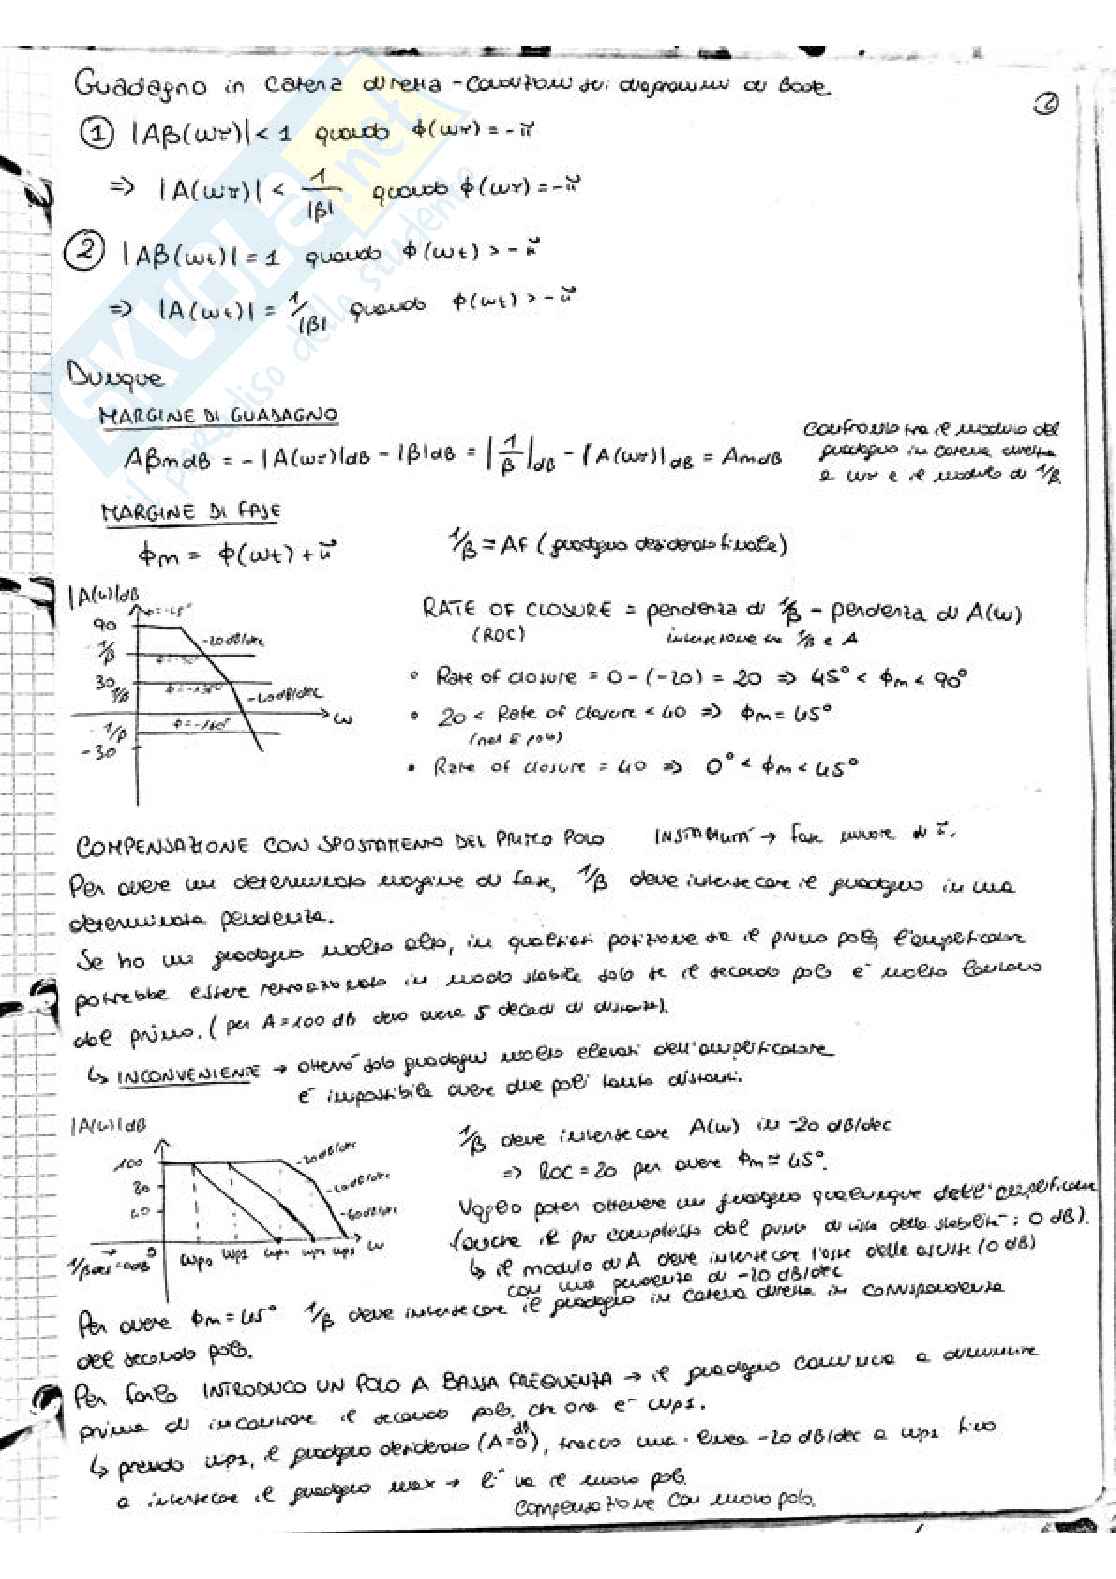 Guadagno in catena diretta - Condizioni sui diagrammi di Bode
2
① |Aβ(ωπ)| < 1 quando ϕ(ωπ) = -π
=> |A(ωπ)| < 1/|β| quando ϕ(ωπ) = -π
② |Aβ(ωt)| = 1 quando ϕ(ωt) > -π
=> |A(ωt)| = 1/|β| quando ϕ(ωt) > -π
SKUOLA.net
il paradiso dello studente
Dunque
MARGINE DI GUADAGNO
AβmdB = -|A(ωπ)|dB - |β|dB = |1/β|dB - |A(ωπ)|dB = AmdB
Confronto tra il modulo del
guadagno in catena diretta
a ωπ e il modulo di 1/β
MARGINE DI FASE
ϕm = ϕ(ωt) + π
1/β = AF (guadagno desiderato finale)
|A(ω)|dB
ϕ=-45°
90
-20dB/dec
1/β
ϕ=-90°
30
1/β
-40dB/dec
ω
1/β
ϕ=-180°
-30
RATE OF CLOSURE = pendenza di 1/β - pendenza di A(ω)
(ROC) intersezione tra 1/β e A
• Rate of closure = 0-(-20) = 20 => 45° < ϕm < 90°
• 20 < Rate of closure < 40 => ϕm = 45°
(nel 2° polo)
• Rate of closure = 40 => 0° < ϕm < 45°
COMPENSAZIONE CON SPOSTAMENTO DEL PRIMO POLO INSTABILITÀ → fase minore di π.
Per avere un determinato margine di fase, 1/β deve intersecare il guadagno in una
determinata pendenza.
Se ho un guadagno molto alto, in qualsiasi posizione sia il primo polo, l'amplificatore
potrebbe essere retroazionato in modo stabile solo se il secondo polo è molto lontano
dal primo. (per A=100 dB devo avere 5 decadi di distanza).
↳ INCONVENIENTE → otterrò solo guadagni molto elevati dell'amplificatore
è impossibile avere due poli tanto distanti.
|A(ω)|dB
100
-20dB/dec
80
-40dB/dec
60
-60dB/dec
0
ωp0 ωp1 ωp1 ωp2 ωp3 ω
1/β = 0dB
1/β deve intersecare A(ω) in -20 dB/dec
=> ROC = 20 per avere ϕm ≅ 45°.
Voglio poter ottenere un guadagno qualunque dell'amplificatore
(anche il più complesso dal punto di vista della stabilità: 0 dB).
↳ il modulo di A deve intersecare l'asse delle ascisse (0 dB)
con una pendenza di -20 dB/dec
Per avere ϕm = 45° 1/β deve intersecare il guadagno in catena diretta in corrispondenza
del secondo polo.
Per farlo INTRODUCO UN POLO A BASSA FREQUENZA → il guadagno comincia a diminuire
prima di incontrare il secondo polo, che ora è ωp1.
↳ prendo ωp1, il guadagno desiderato (A=0dB), traccio una linea -20dB/dec a ωp1 fino
a intersecare il guadagno max → lì va il nuovo polo.
Compensazione con nuovo polo.